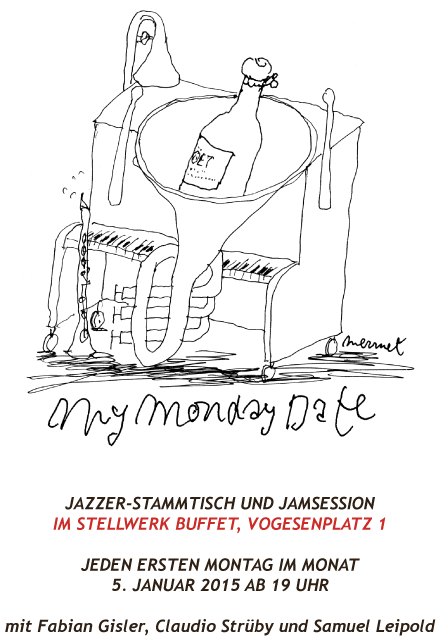 OET
mermet
My Monday Date
JAZZER-STAMMTISCH UND JAMSESSION
IM STELLWERK BUFFET, VOGESENPLATZ 1
JEDEN ERSTEN MONTAG IM MONAT
5. JANUAR 2015 AB 19 UHR
mit Fabian Gisler, Claudio Strüby und Samuel Leipold